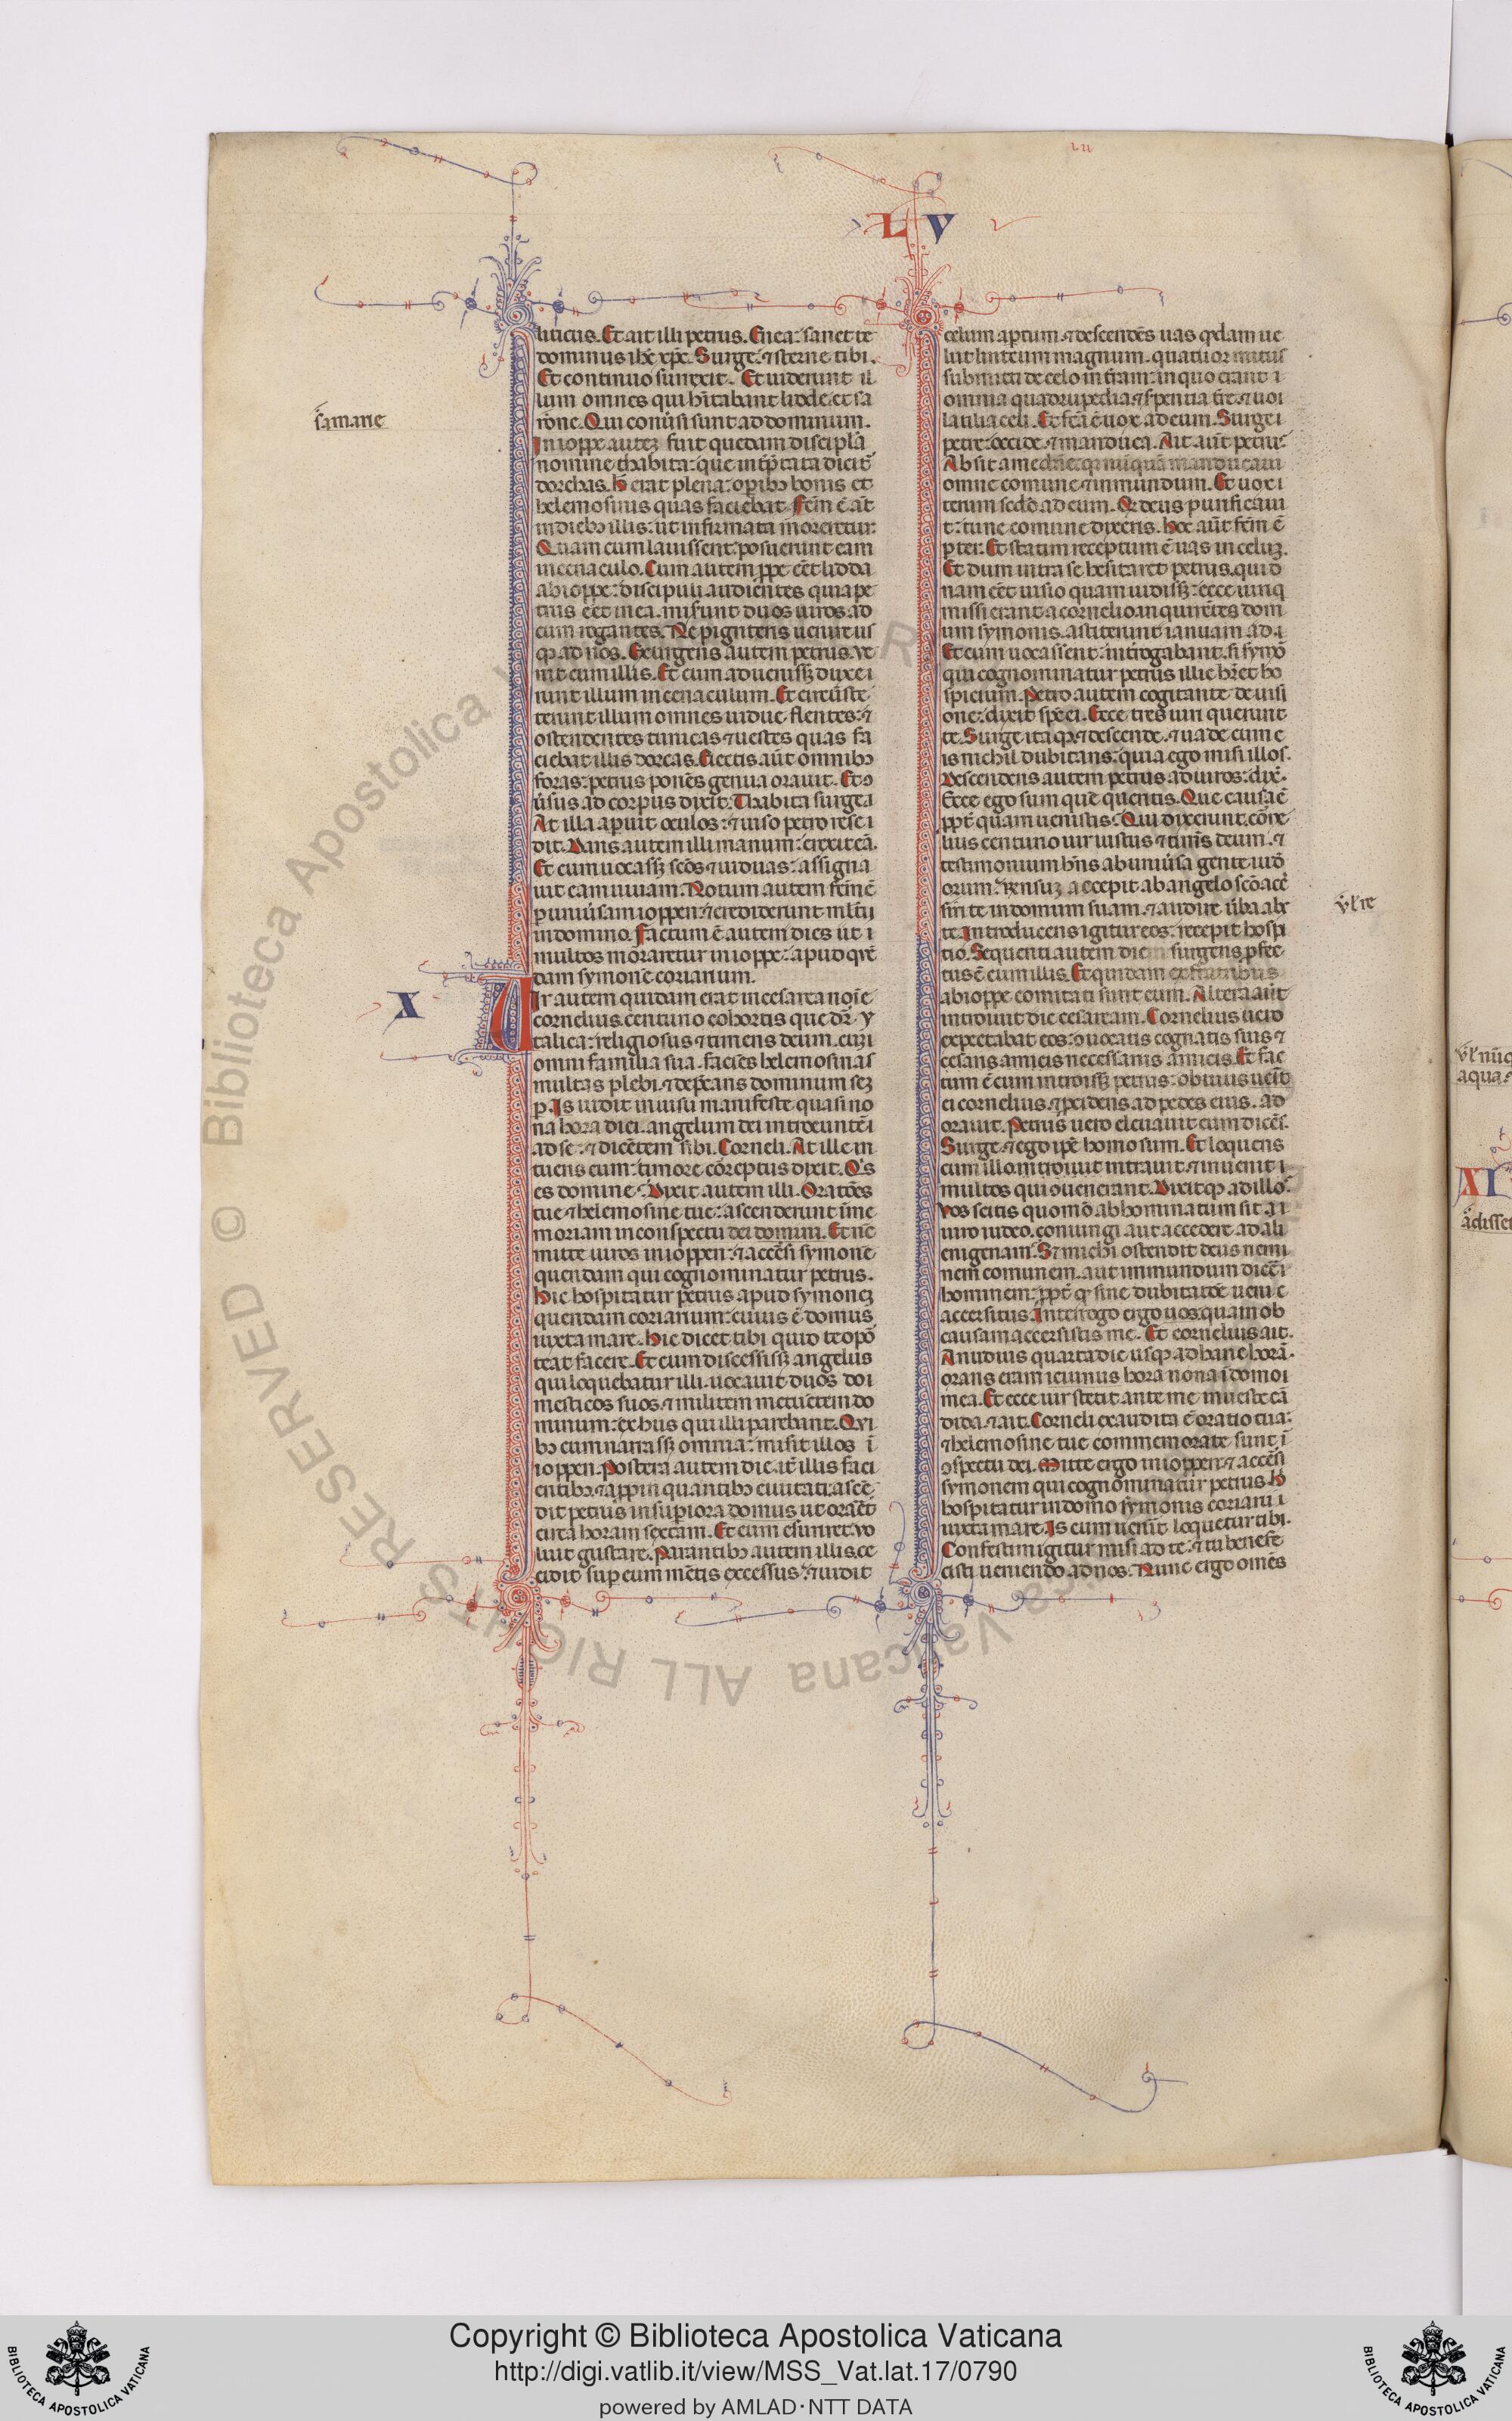 L V
liticus. Et ait illi petrus. Enea: sanet te
dominus ihc̄ xp̄c. Surge: ⁊ sterne tibi.
Et continuo surrexit. Et uiderunt il
lum omnes qui hītabant lidde. et sa
rōne. Qui conūsi sunt ad dominum.
samarie
In ioppe autez fuit quedam discipla
nomine thabita: que int̄p̄tata dicit̄
dorchas. h̄ erat plena: opibꝫ bonis et
helemosinis quas faciebat. fcm̄ ē āt
in diebꝫ illis: ut infirmata moreretur:
Quam cum lauissent: posuerunt eam
in cenaculo. Cum autem ꝓpe eēt lidda
ab ioppe: discipuli audientes quia pe
trus eēt in ea. miserunt duos uiros ad
eum rogantes. Ne pigriteris uenire us
qꝫ ad nos. Exurgens autem petrus. ve
nit cum illis. Et cum aduenissꝫ duxe
runt illum in cenaculum. Et circūste
terunt illum omnes uidue flentes: ⁊
ostendentes tunicas ⁊ uestes quas fa
ciebat illis dorcas. Eiectis aūt omnibꝫ
foras: petrus ponēs genua orauit. Et ꝯ
ūsus ad corpus dixit. Thabita surge.
At illa aperuit oculos: ⁊ uiso petro rese
dit. Dans autem illi manum: erexit eā.
Et cum uocassꝫ scōs ⁊ uiduas: assigna
uit eam uiuam. Notum autem fcm̄ ē
ꝑ uniūsam ioppen: ⁊ crediderunt ml̄ti
in domino. factum ē autem dies ut
multos moraretur in ioppe: apud quē
dam symonē coriarium.
X
Uir autem quidam erat in cesarea noīe
cornelius. centurio cohortis que dr̄ y
talica: religiosus ⁊ timens deum. cuz
omni familia sua. faciēs helemosinas
multas plebi. ⁊ dep̄cans dominum sez
ꝑ. Is uidit in uisu manifeste quasi no
na hora diei. angelum dei introeuntē
ad se: ⁊ dicētem sibi. Corneli. At ille in
tuens eum: timore cōreptus dixit. Qˢ
es domine: Dixit autem illi. Oratōes
tue ⁊ helemosine tue: ascenderunt ī me
moriam in conspectu dei domini. Et nūc
mitte uiros in ioppen: ⁊ accersi symonē
quendam qui cognominatur petrus.
Hic hospitatur petrus apud symonez
quendam coriarium: cuius ē domus
iuxta mare. Hic dicet tibi quid te opo
teat facere. Et cum discessissꝫ angelus
qui loquebatur illi. uocauit duos do
mesticos suos. ⁊ militem metuētem do
minum: ex hiis qui illi parebant. Qui
bꝫ cum narrassꝫ omnia: misit illos ī
ioppen. Postera autem die it̄ illis faci
entibꝫ. ⁊ appīn quantibꝫ ciuitati: ascē
dit petrus in supiora domus ut orarēt
circa horam sextam. Et cum esuriret: uo
luit gustare. Parantibꝫ autem illis. ce
cidit sup eum mētis excessus: ⁊ uidit
celum aptum. ⁊ descendēs uas qdam ue
lut linteum magnum. quatuor initiis
submitti de celo in t̄ram: in quo erant
omnia quadrupedia ⁊ s̄pentia t̄re. ⁊ uo
latilia celi. Et fcā ē uox ad eum. Surge
petre: occide. ⁊ manduca. Ait aūt petrus
Absit a me dn̄e: qr nūquā manducaui
omne comune ⁊ inmundum. Et uox i
terum scd̄o ad eum. Q deus purificaui
t: tu ne comune dixeris. Hoc aūt fcm̄ ē
ꝑ ter: Et statim receptum ē uas in celuꝫ.
Et dum intra se hesitaret petrus. quid
nam eēt uisio quam uidissꝫ: ecce uirīq
missi erant a cornelio. inquirētes dom
um symonis. astiterunt ianuam ad
Et cum uocassent: int̄rogabant. si symō
qui cognominatur petrus illic hr̄et ho
spicium. Petro autem cogitante de uisi
one: dixit sp̄c ei. Ecce tres uiri querunt
te. Surge itaqꝫ ⁊ descende. ⁊ uade cum e
is nichil dubitans: quia ego misi illos.
Descendens autem petrus ad uiros: dix̄.
Ecce ego sum quē queritis. Que causa ē
ꝓpt̄ quam uenistis: Qui dixerunt. corne
lius centurio uir iustus ⁊ timēs deum. ⁊
testimonium hn̄s ab uniūsa gente iudē
orum. Rensuꝫ accepit ab angelo scō acc̄
siri te in domum suam. ⁊ audire ūba abs
ūl re
te. Introducens igitur eos: recepit hospi
tio. Sequenti autem die surgens ꝓfec
tus ē cum illis. Et quidam ex fratribus
ab ioppe comitati sunt eum. Altera aūt
introiuit die cesaream. Cornelius uero
expectabat eos: ꝯuocatis cognatis suis ⁊
cesaris amicis necessariis amicis. Et fac
tum ē cum introissꝫ petrus: obuius uēit
ei cornelius. ⁊ ꝓcidens ad pedes eius. ad
orauit. Petrus uero eleuauit eum dicēs.
Surge ⁊ ego ipē homo sum. Et loquens
cum illo. introiuit intrauit. ⁊ inuenit
multos qui ꝯuenerant. Dixitqꝫ ad illos
Vos scitis quomō abhominatum sit
uiro iudeo. coniungi aut accedere ad ali
enigenam. Sꝫ michi ostendit deus nemi
nem comunem. aut immundum dicē
hominem: ꝓpt̄ qꝫ sine dubitatōe ueni
accersitus. Interrogo ergo uos. quam ob
causam accersistis me. Et cornelius ait.
A nudius quarta die usqꝫ ad hanc horā.
orans eram ieiunus hora nona ī domo
mea. Et ecce uir stetit ante me in ueste cā
dida. ⁊ ait. Corneli exaudita ē oratio tua:
⁊ helemosine tue commemorate sunt ī
ꝯspectu dei. Mitte ergo in ioppen: ⁊ accersi
symonem qui cognominatur petrus. h̄
hospitatur in domo symonis coriarii
iuxta mare. Is cum uenīt loquetur tibi.
Confestim igitur misi ad te: ⁊ tu benefe
cisti ueniendo ad nos. Nunc ergo omēs
XI
Biblioteca Apostolica Vaticana ALL RIGHTS RESERVED ©
Copyright © Biblioteca Apostolica Vaticana
http://digi.vatlib.it/view/MSS_Vat.lat.17/0790
powered by AMLAD·NTT DATA
BIBLIOTECA APOSTOLICA VATICANA
BIBLIOTECA APOSTOLICA VATICANA